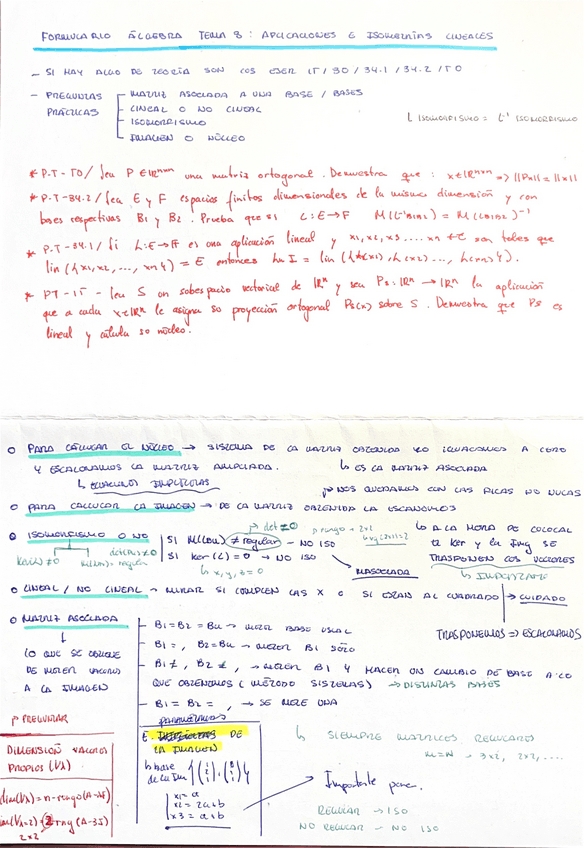 FORMULARIO ÁLGEBRA TEMA 8: APLICACIONES E ISOMETRÍAS LINEALES
- SI HAY ALGO DE TEORÍA SON LOS EJER 1T / 30 / 34.1 / 34.2 / TO
- PREGUNTAS PRÁCTICAS
- MATRIZ ASOCIADA A UNA BASE / BASES
- LINEAL O NO LINEAL
- ISOMORFISMO
- IMAGEN O NÚCLEO
L ISOMORFISMO = L⁻¹ ISOMORFISMO
* P.T - TO / Sea P ∈ ℝⁿˣⁿ una matriz ortogonal. Demuestra que: x ∈ ℝⁿˣⁿ => ||Px|| = ||x||
* P.T - 34.2 / Sea E y F espacios finitos dimensionales de la misma dimensión y con
bases respectivas B1 y B2. Prueba que si L: E → F M(L⁻¹B1B2) = M(LB1B2)⁻¹
* P.T - 34.1 / Si L: E → F es una aplicación lineal y x1, x2, x3 .... xn ∈ E son tales que
lin {x1, x2, ..., xn} = E entonces Im L = lin {L(x1), L(x2) ..., L(xn)}.
* PT - 1T - Sea S un subespacio vectorial de ℝⁿ y sea Ps: ℝⁿ → ℝⁿ la aplicación
que a cada x ∈ ℝⁿ le asigna su proyección ortogonal Ps(x) sobre S. Demuestra que Ps es
lineal y calcula su núcleo.
O PARA CALCULAR EL NÚCLEO → SISTEMA DE LA MATRIZ OBTENIDA LO IGUALAMOS A CERO
Y ESCALONAMOS LA MATRIZ AMPLIADA.
↳ ES LA MATRIZ ASOCIADA
↳ ECUACIONES IMPLÍCITAS
NOS QUEDAMOS CON LAS FILAS NO NULAS
O PARA CALCULAR LA IMAGEN → DE LA MATRIZ OBTENIDA LA ESCALONAMOS
O ISOMORFISMO O NO
det ≠ 0
SI ≠ regular - NO ISO
SI Ker(L) = 0 → NO ISO
↳ x, y, z = 0
M ASOCIADA
↳ A LA HORA DE COLOCAR
EL Ker y LA Img SE
TRASPONEN LOS VECTORES
↳ IMPORTANTE
O LINEAL / NO LINEAL → MIRAR SI CUMPLEN LAS X O SI ESTÁN AL CUADRADO → CUIDADO
TRASPONEMOS => ESCALONAMOS
O MATRIZ ASOCIADA
↓
LO QUE SE OBTIENE
DE METER VALORES
A LA IMAGEN
- B1 = B2 = Bu → METER BASE USUAL
- B1 = , B2 = Bu → METER B1 SOLO
- B1 ≠, B2 ≠, → METER B1 Y HACER UN CAMBIO DE BASE A LO
QUE OBTENEMOS (MÉTODO SISTEMAS) → DISTINTAS BASES
- B1 = B2 = , → SE METE UNA
PREGUNTAR
DIMENSIÓN VALORES
PROPIOS (Vλ)
dim(Vλ) = n - rango(A - λI)
dim(Vλ=2) = rng(A - 3I)
2x2
paramétricas
E. DE
LA IMAGEN
↳ base
de la Im
x1 = a
x2 = 2a + b
x3 = a + b
↳ SIEMPRE MATRICES REGULARES
m = n → 3x2, 2x2, ....
Importante poner.
REGULAR → ISO
NO REGULAR → NO ISO